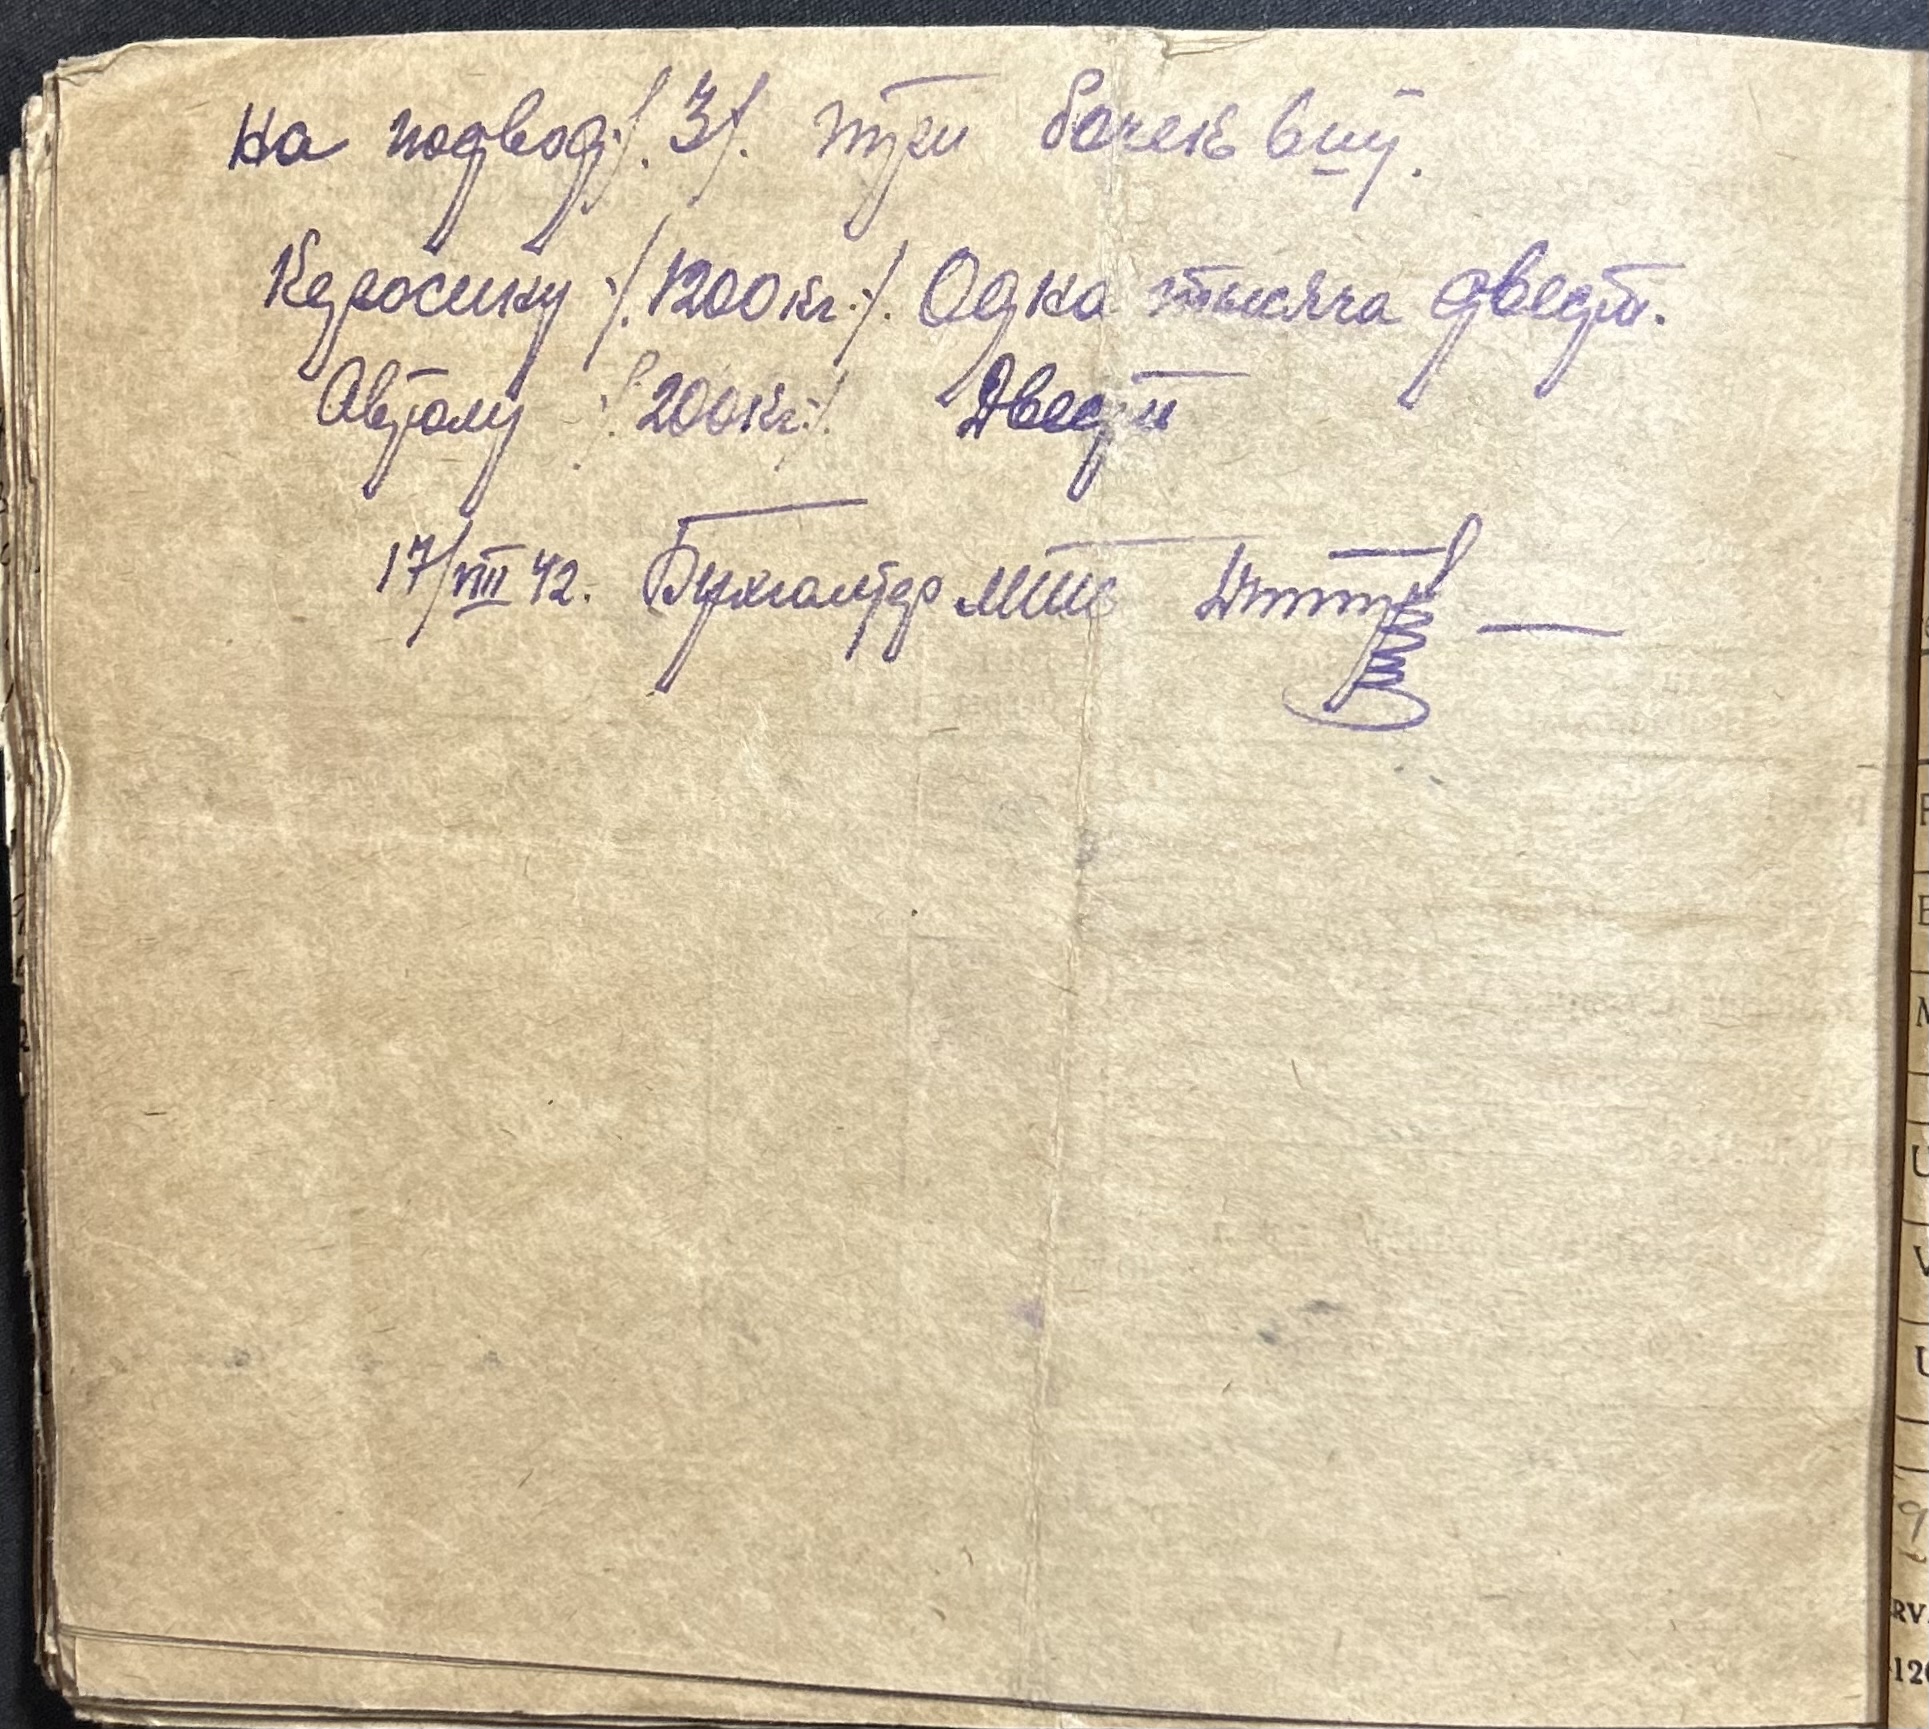 на подвод ./. 3 ./. три бочек в шт.
Керосину ./. 1200 кг. ./. Одна тысяча двести.
Автолу ./. 200 кг. ./. Двести
17/VIII 42. Бухгалтер МТС
RV
12